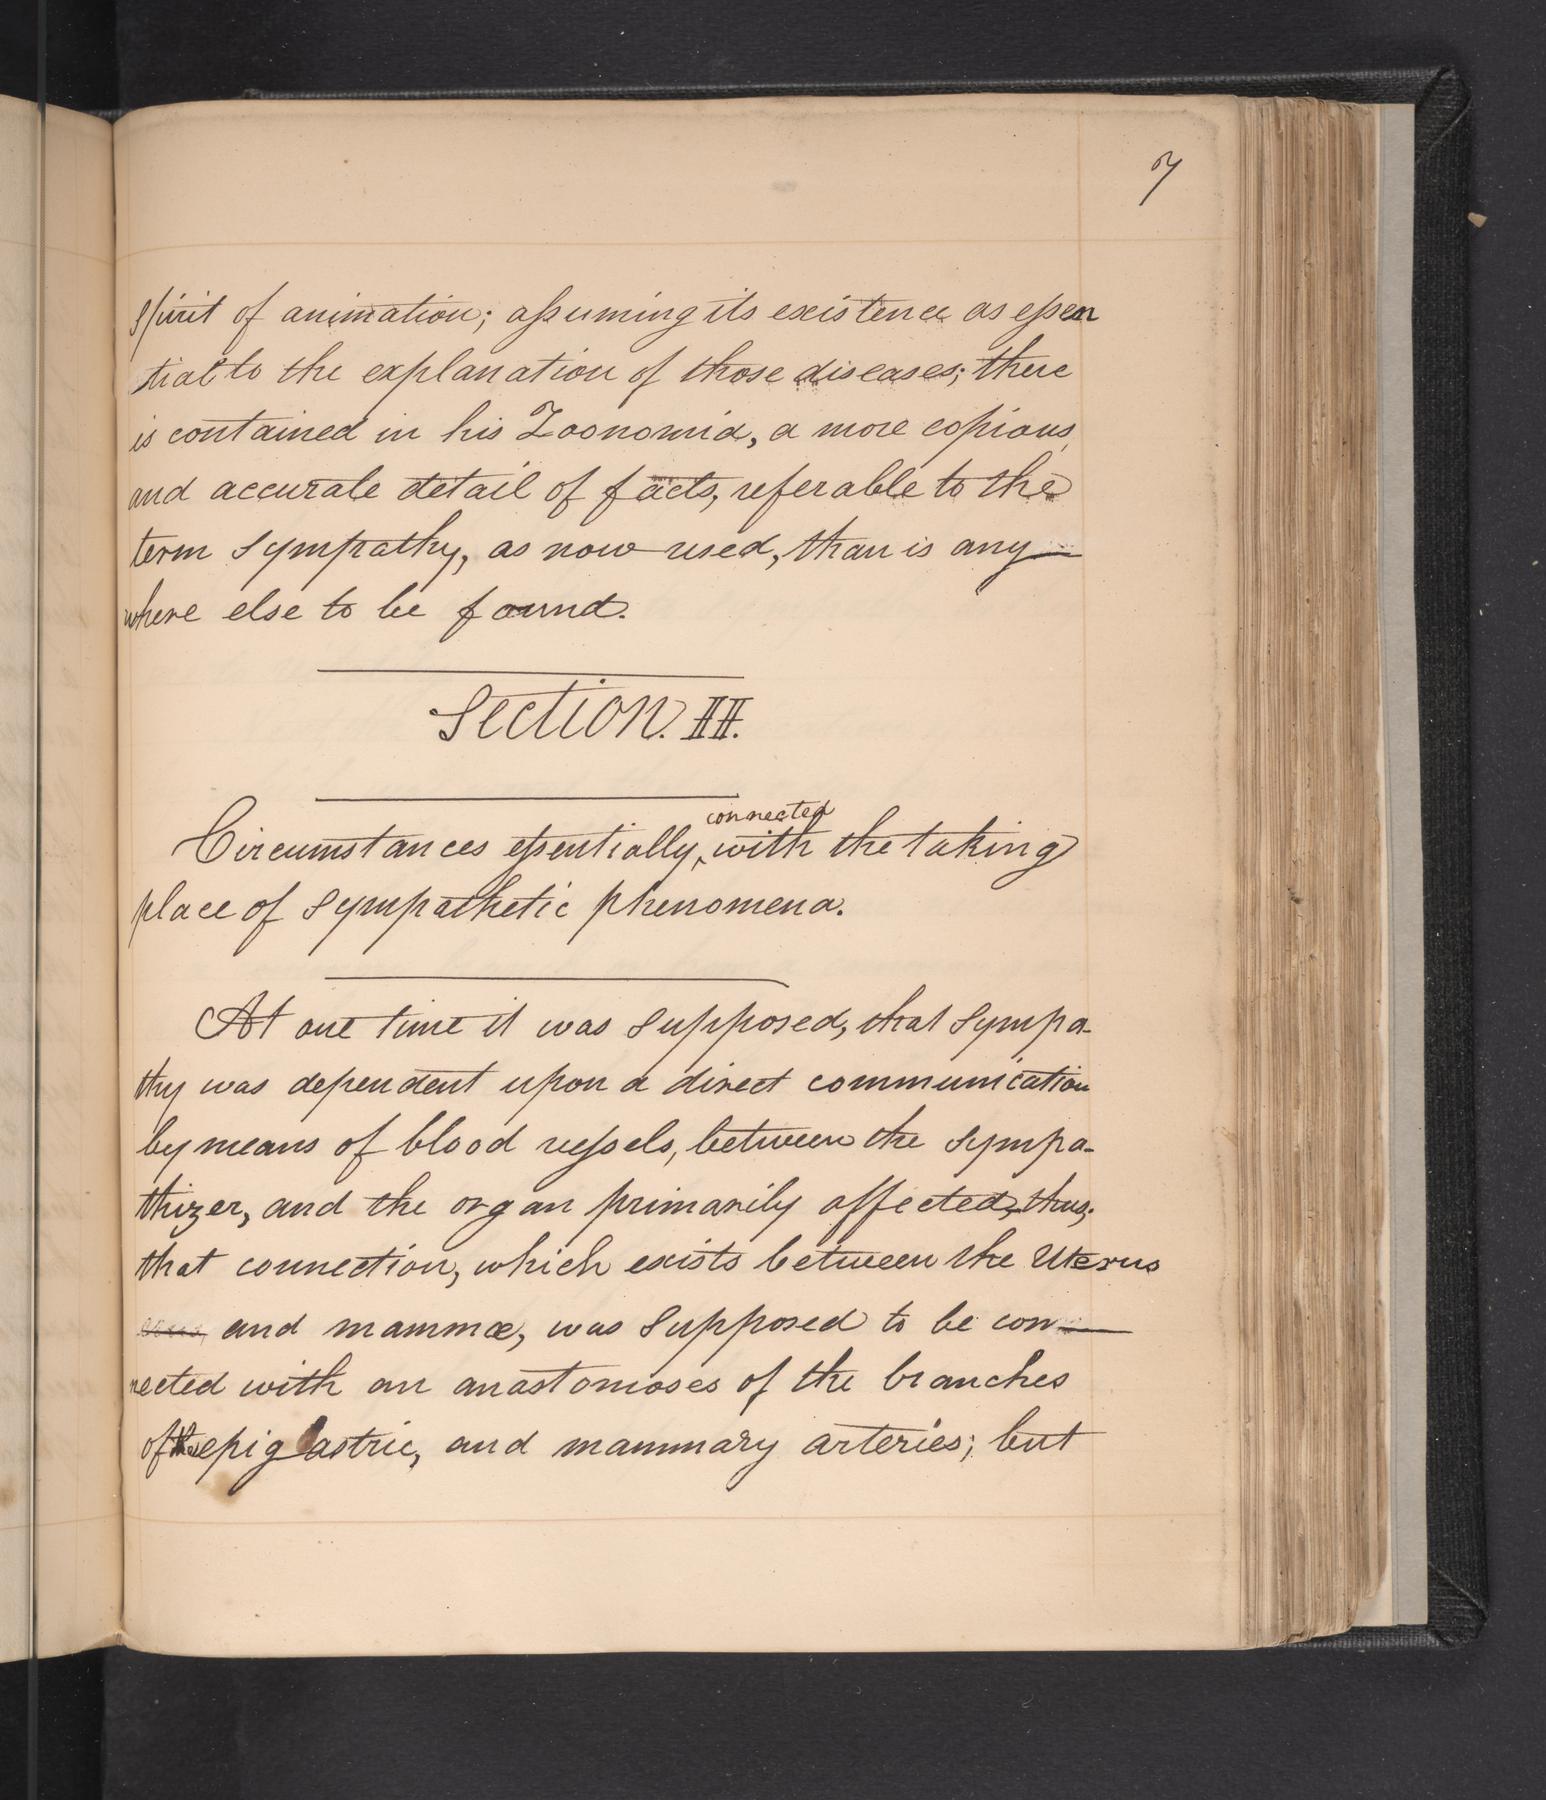 7
spirit of animation; assuming its existence as essen
tial to the explanation of those diseases; there
is contained in his Zoonomia, a more copious,
and accurate detail of facts, referable to the
term sympathy, as now used, than is any—
where else to be found.
Section. II.
connected
Circumstances essentially, ‸ with the taking
place of sympathetic phenomena.
At one time it was supposed, that sympa-
thy was dependent upon a direct communication
by means of blood vessels, between the sympa-
thizer, and the organ primarily affected, thus,
that connection, which exists between the Uterus
and mammæ, was supposed to be con—
nected with an anastomoses of the branches
of the epigastric, and mammary arteries; but